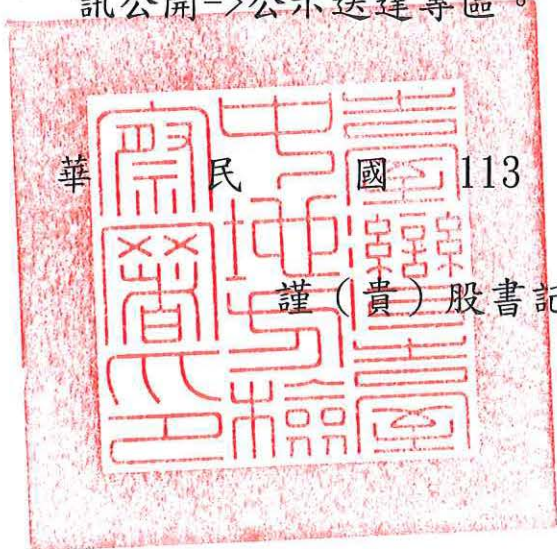 訊公開->公示送達專區。
華 民 國 113
謹(貴)股書記
臺灣臺
中地方檢
察署印